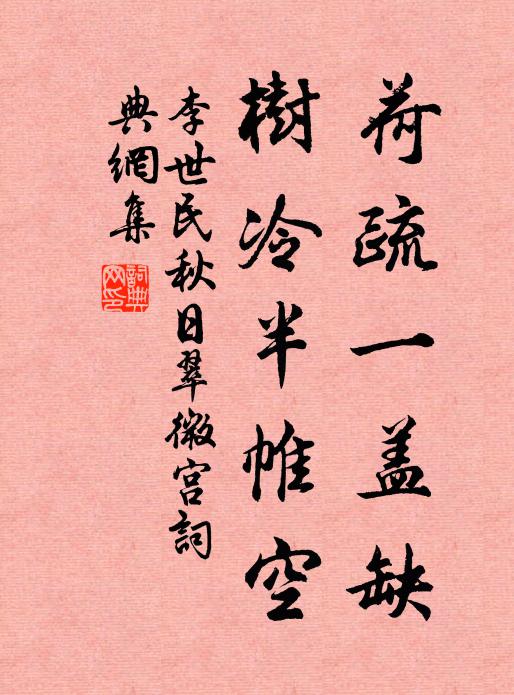 荷疏一盖缺
樹冷半帷空
李世民秋日翠微宫詞
典網集
詞典
网印